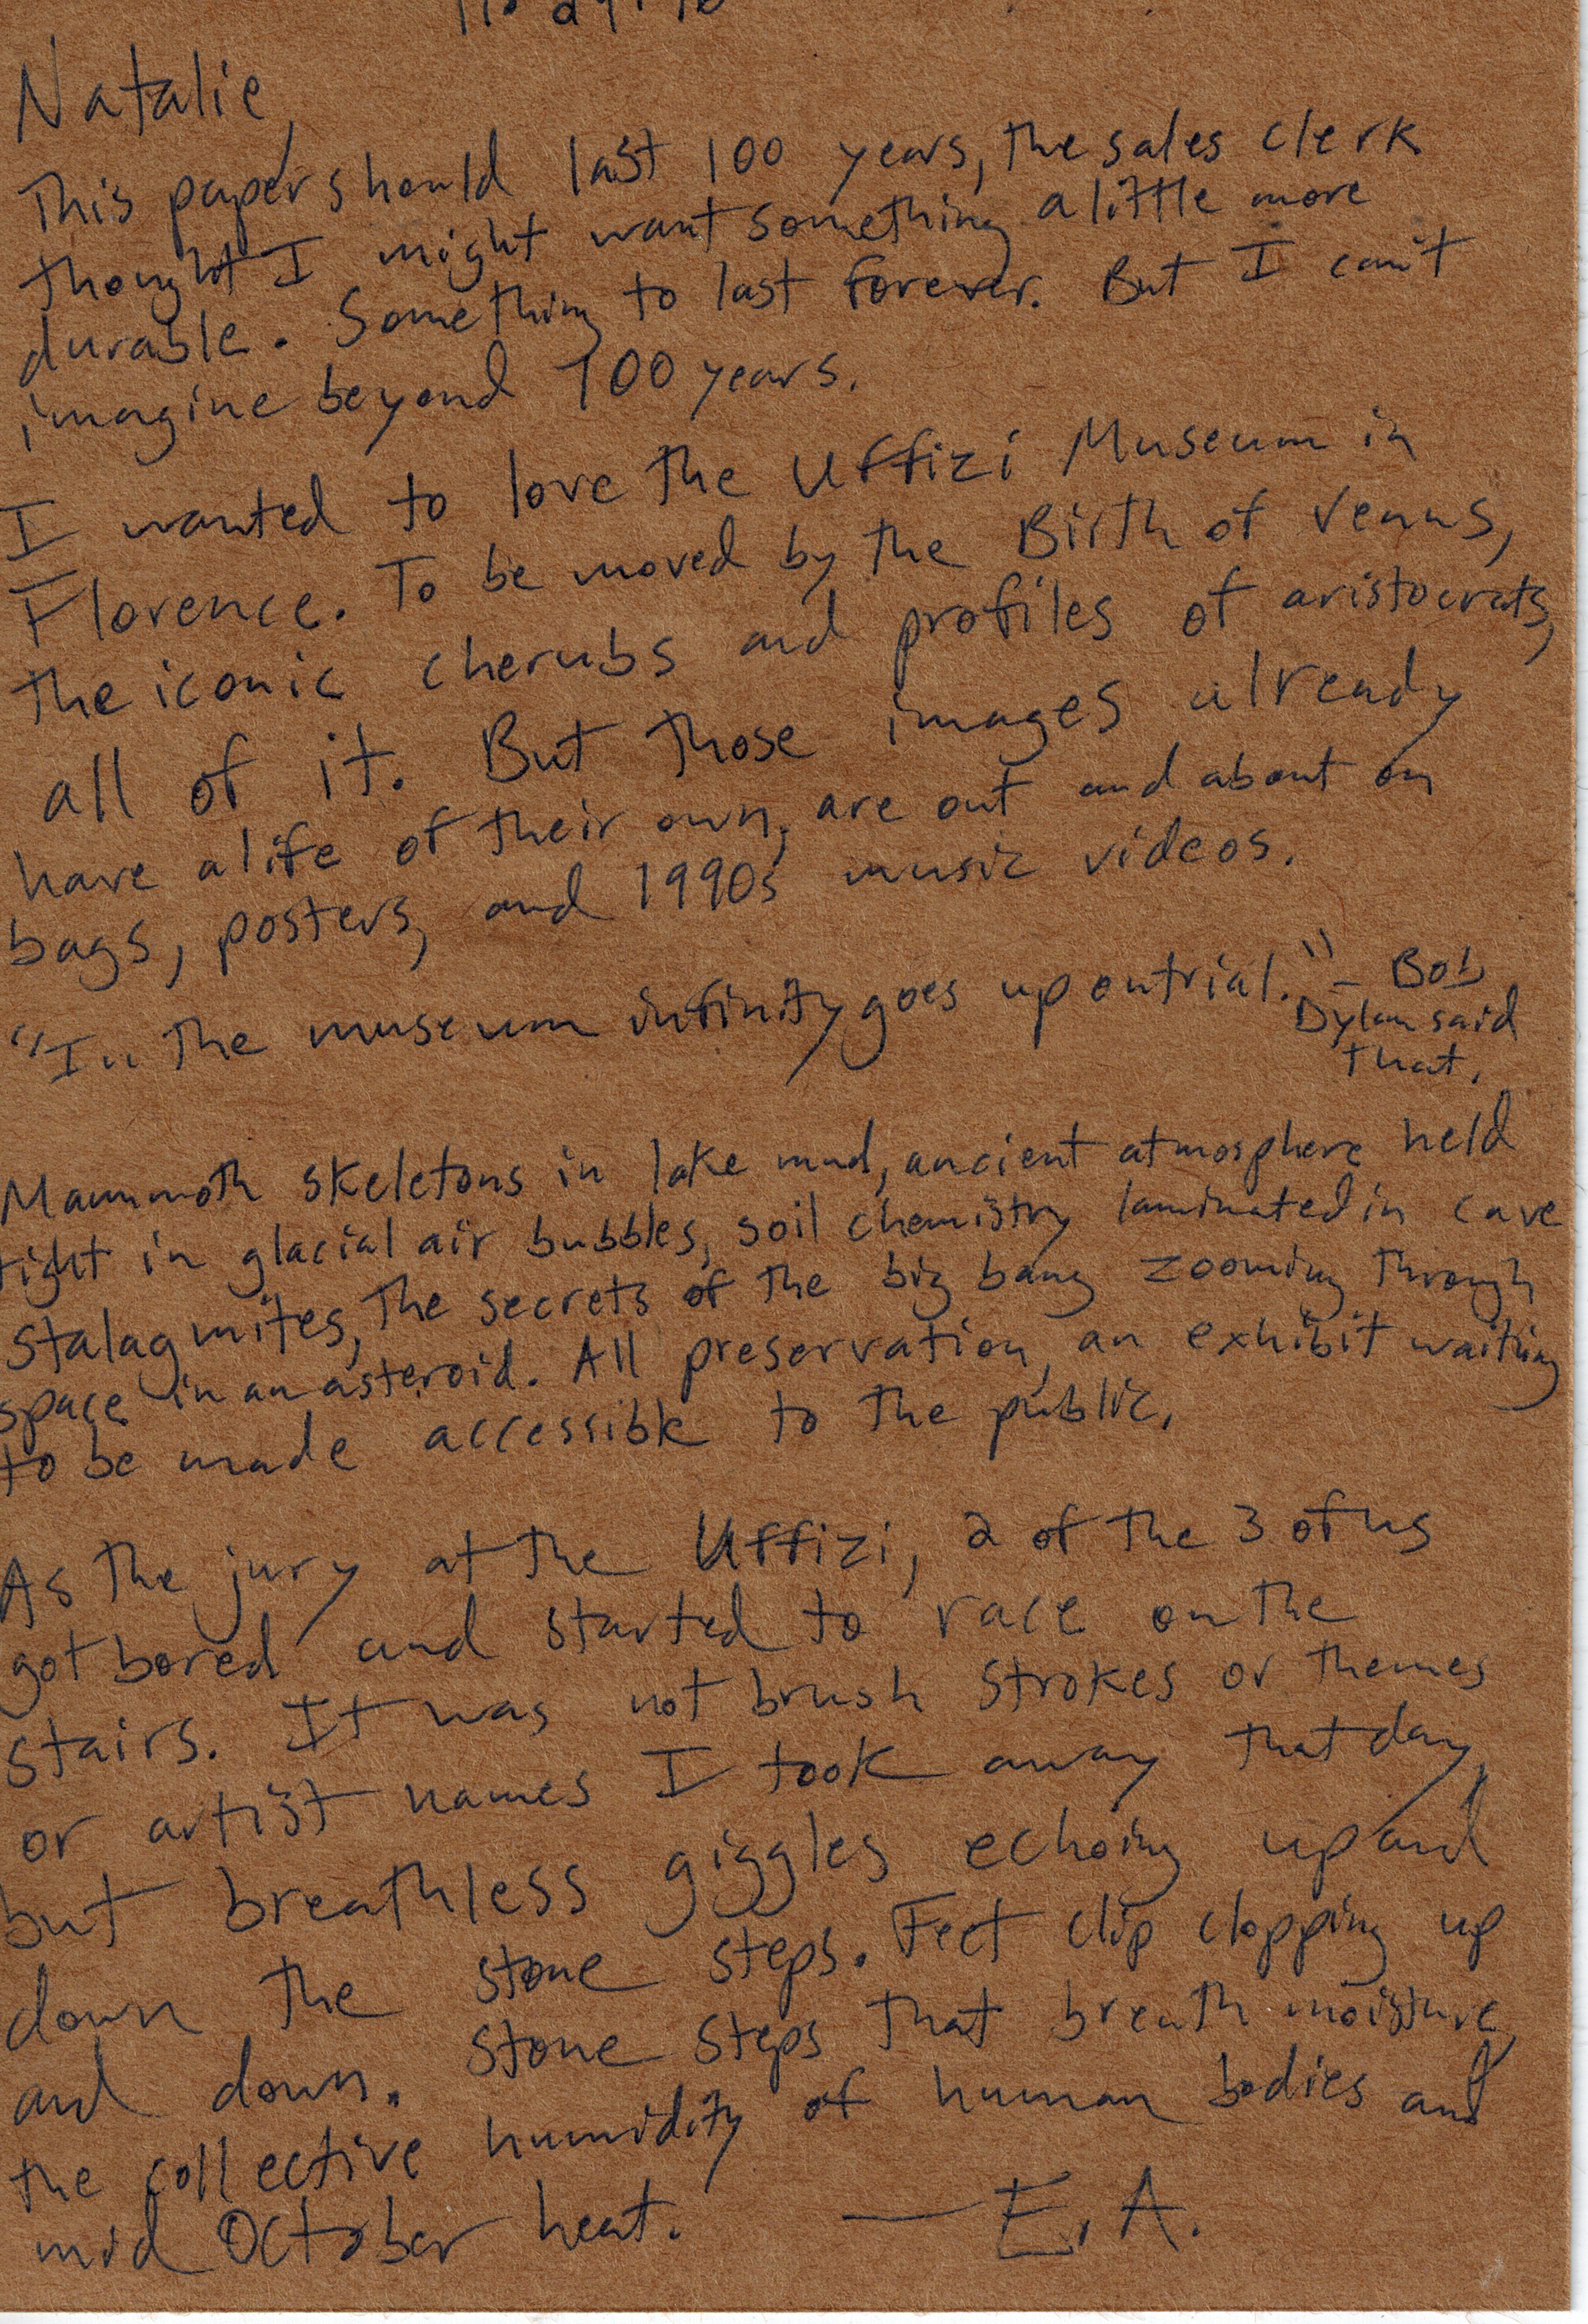 Natalie,
This paper should last 100 years, the sales clerk
thought I might want something a little more
durable. Something to last forever. But I can't
imagine beyond 100 years.
I wanted to love the Uffizi Museum in
Florence. To be moved by the Birth of Venus,
the iconic cherubs and profiles of aristocrats,
all of it. But those images already
have a life of their own, are out and about on
bags, posters, and 1990s music videos.
"In the museum infinity goes up on trial." - Bob
Dylan said
that.
Mammoth skeletons in lake mud, ancient atmosphere held
tight in glacial air bubbles, soil chemistry laminated in cave
stalagmites, the secrets of the big bang zooming through
space in an asteroid. All preservation, an exhibit waiting
to be made accessible to the public.
As the jury at the Uffizi, 2 of the 3 of us
got bored and started to race on the
stairs. It was not brush strokes or themes
or artist names I took away that day,
but breathless giggles echoing up and
down the stone steps. Feet clip clopping up
and down. Stone steps that breath moisture,
the collective humidity of human bodies and
mid October heat. — E.A.